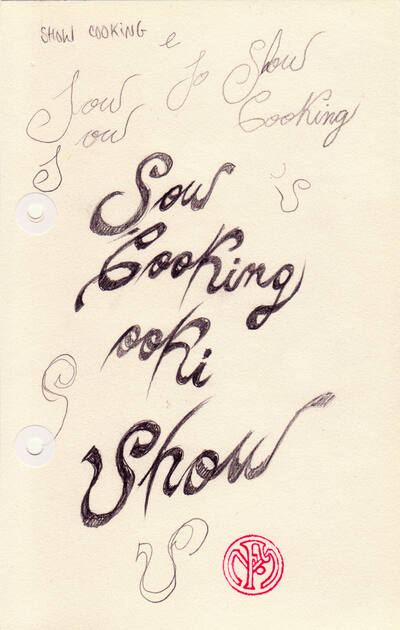 SHOW COOKING
e
Sow So Show
ow Cooking
S
S
Sow
Cooking
ooki
S
Show
S